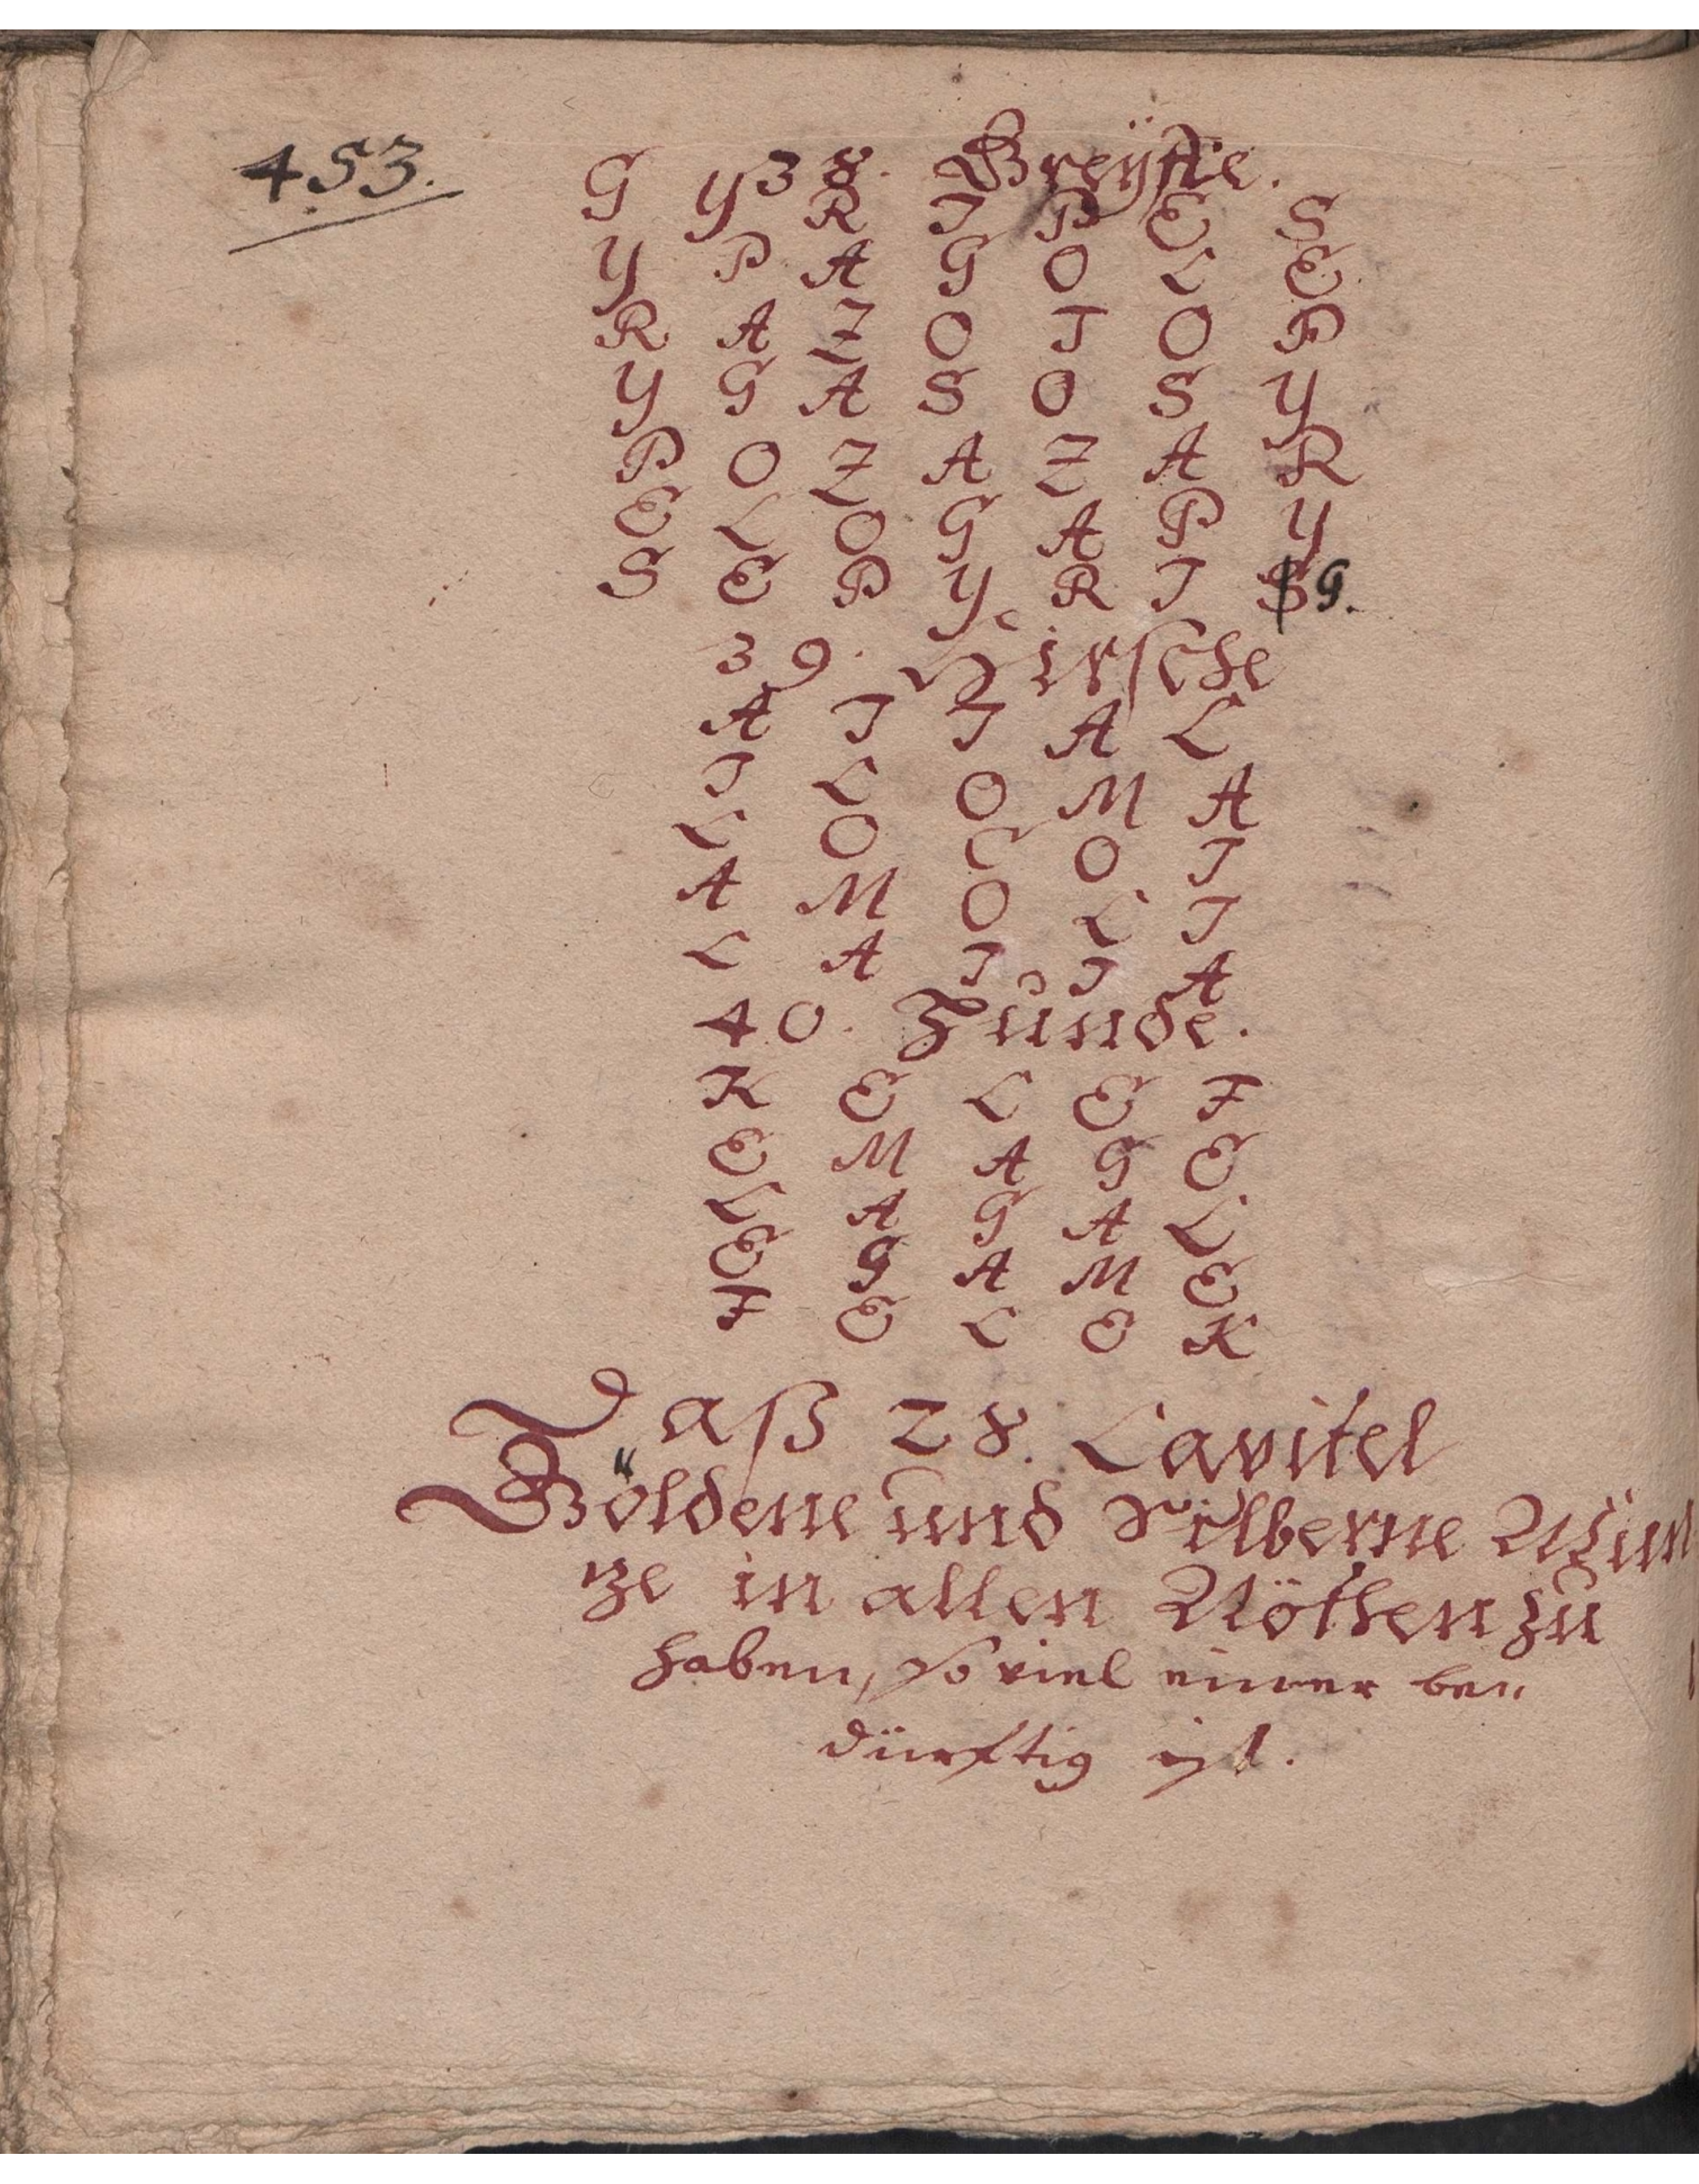 453.
38. Greyffe.
G Y R I P E S
Y P A G O L E
R A Z O T O P
Y G A S O S Y
P O Z A Z A R
E L O G A P Y
S E P Y R I S G.
39. Hirsche
A I I A L
I L O M A
L O C O I
A M O L I
L A I I A
40. Hunde.
K E L E F
E M A G E
L A G A L
E G A M E
F E L E K
Daß 28. Capitel
Göldene und Silberne Mün
ze in allen Nöthen zu
haben, so viel einer be„
dürftig ist.